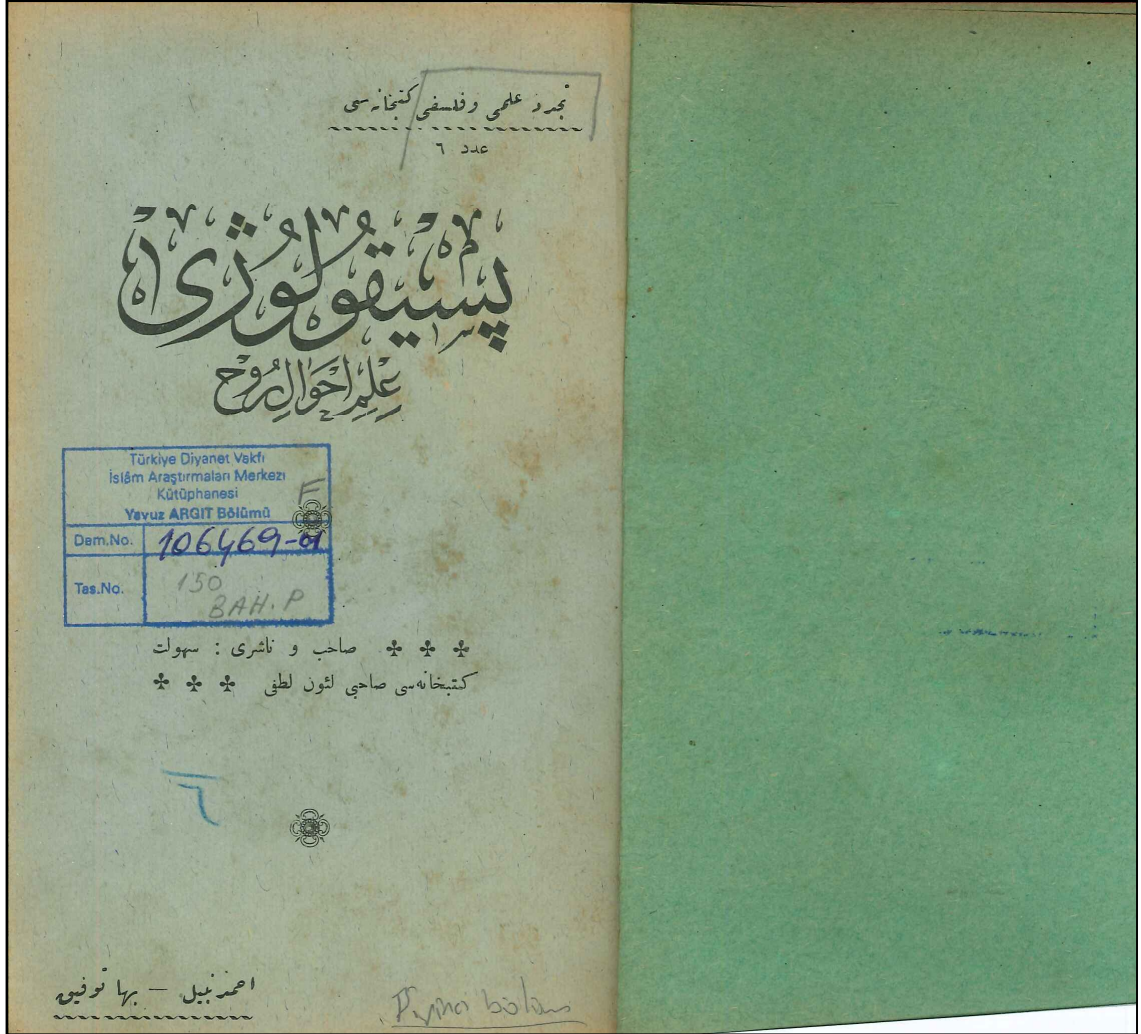 تجدد علمی و فلسفی کتبخانه‌سی
عدد ٦
پسیقولوژی
عِلمِ احوالِ رُوح
Türkiye Diyanet Vakfı
İslâm Araştırmaları Merkezi
Kütüphanesi
Yavuz ARGIT Bölümü
F
Dem.No. 106469-01
Tas.No. 150
BAH.P
صاحب و ناشری : سهولت
كتبخانه‌سی صاحبی لئون لطفی
٦
احمد نبیل — بها توفیق